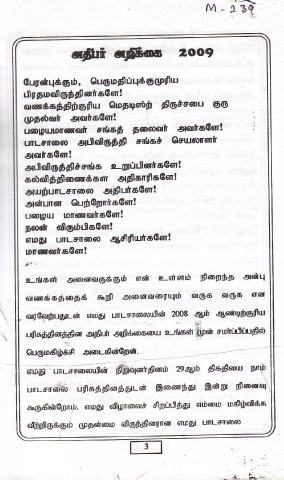 M-239
அதிபர் அறிக்கை 2009
பேரன்புக்கும், பெருமதிப்புக்குமுரிய
பிரதமவிருந்தினர்களே!
வணக்கத்திற்குரிய மெதடிஸ்ற் திருச்சபை குரு
முதல்வர் அவர்களே!
பழையமாணவர் சங்கத் தலைவர் அவர்களே!
பாடசாலை அபிவிருத்தி சங்கச் செயலாளர்
அவர்களே!
அபிவிருத்திச்சங்க உறுப்பினர்களே!
கல்வித்திணைக்கள அதிகாரிகளே!
அயற்பாடசாலை அதிபர்களே!
அன்பான பெற்றோர்களே!
பழைய மாணவர்களே!
நலன் விரும்பிகளே!
எமது பாடசாலை ஆசிரியர்களே!
மாணவர்களே!
உங்கள் அனைவருக்கும் என் உள்ளம் நிறைந்த அன்பு
வணக்கத்தைக் கூறி அனைவரையும் வருக வருக என
வரவேற்பதுடன் எமது பாடசாலையின் 2008 ஆம் ஆண்டிற்குரிய
பரிசுத்தினத்தின அதிபர் அறிக்கையை உங்கள் முன் சமர்ப்பிப்பதில்
பெருமகிழ்ச்சி அடைகின்றேன்.
எமது பாடசாலையின் நிறுவுனர்தினம் 29ஆம் திகதியை நாம்
பாடசாலை பரிசுத்தினத்துடன் இணைந்து இன்று நினைவு
கூருகின்றோம். எமது விழாவைச் சிறப்பித்து எம்மை மகிழ்விக்க
வீற்றிருக்கும் முதன்மை விருந்தினரான எமது பாடசாலை
3